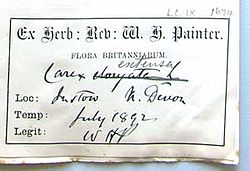 LC. IX 1674
Ex Herb: Rev: W. H. Painter.
FLORA BRITANNIARUM.
extensa
Carex elongata L
Loc: Instow N. Devon
Temp: July 1892
Legit: W H P